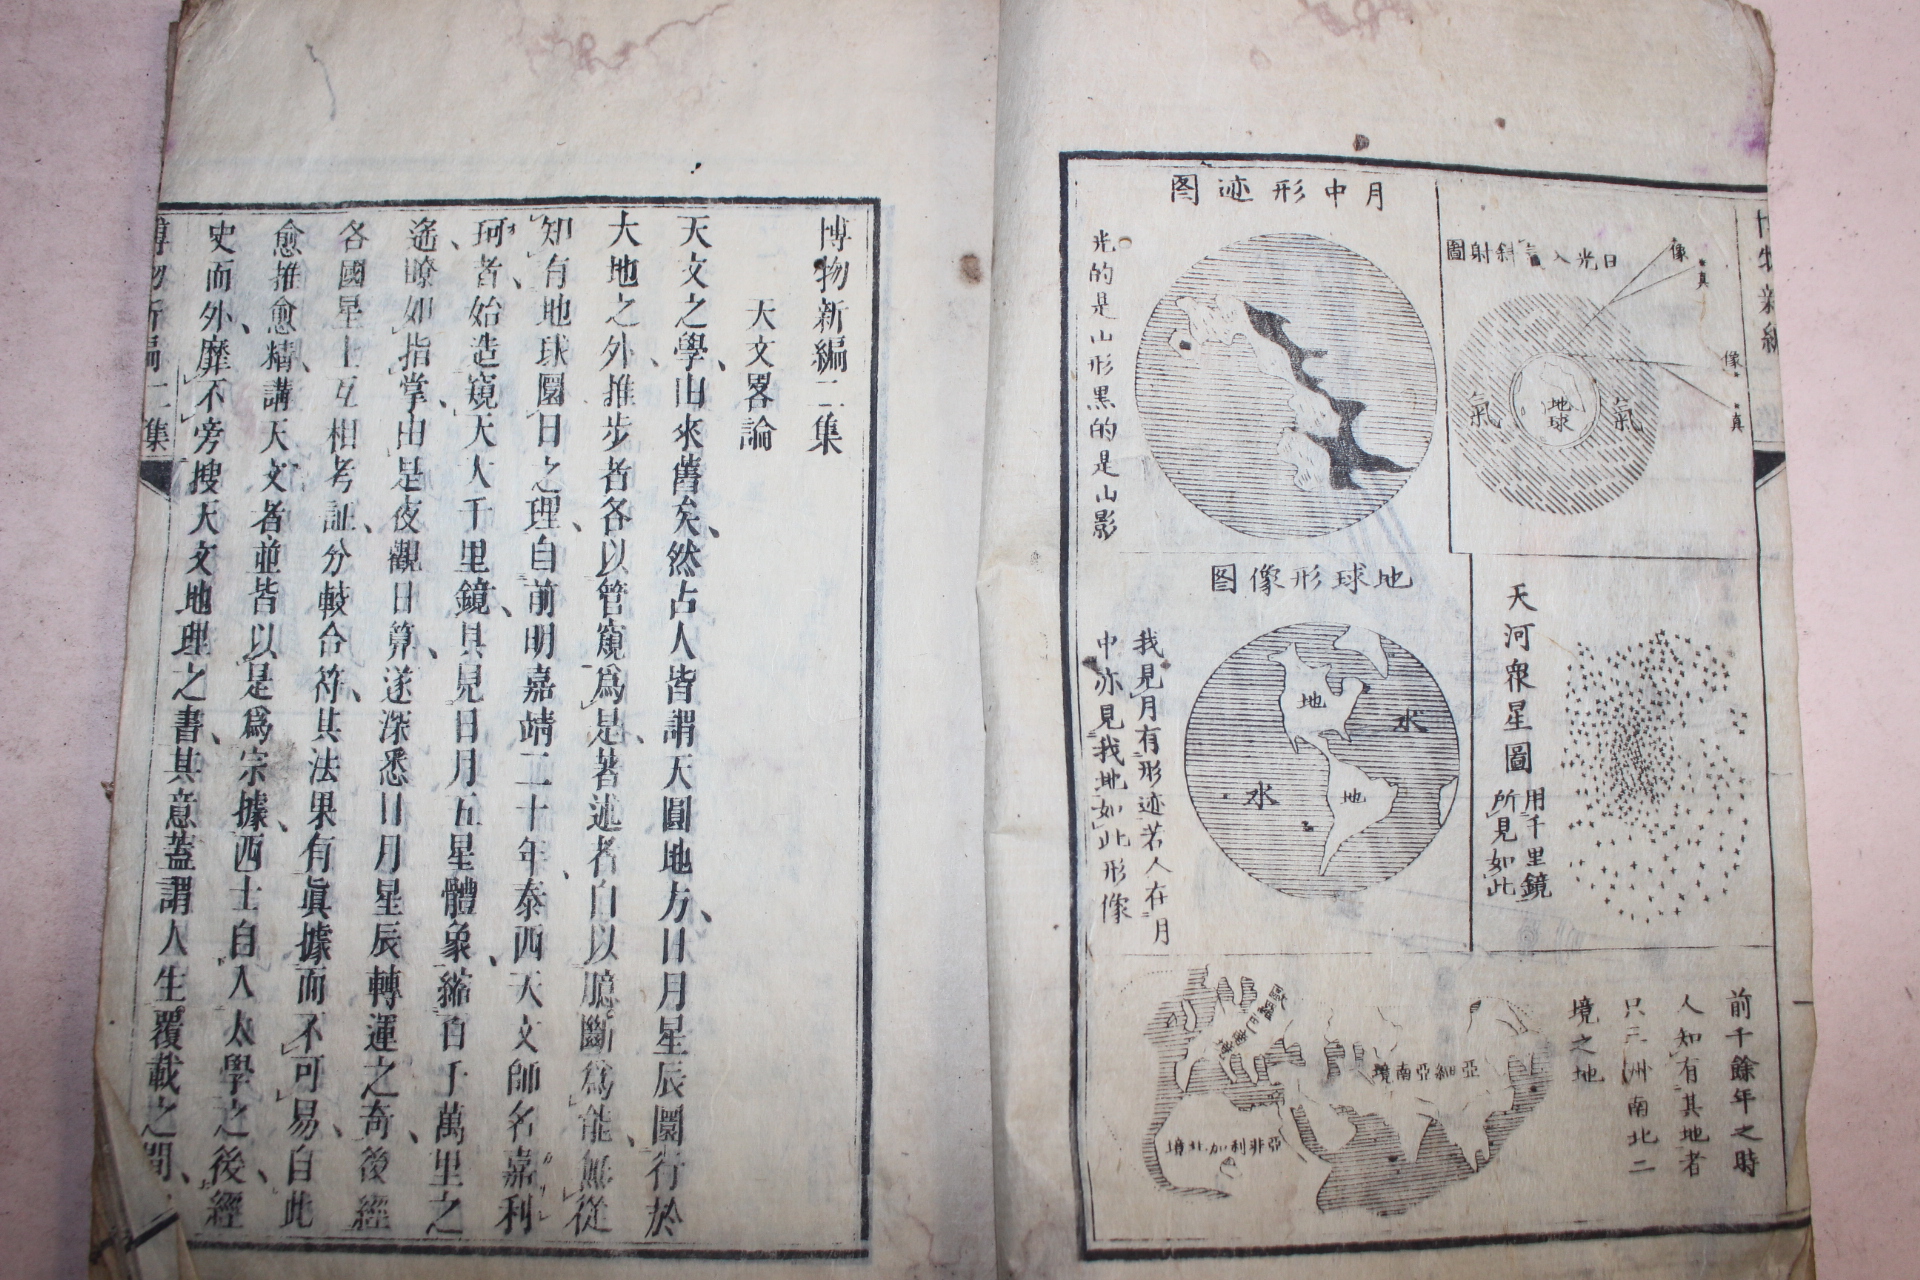 月中形迹图
光的是山形黑的是山影
日光入氣斜射圖
像
真
像
真
氣
地球
氣
地球形像图
我見月有形迹若人在月
中亦見我地如此形像
地
水
水
地
天河衆星圖
用千里鏡
所見如此
前千餘年之時
人知有其地者
只三洲南北二
境之地
歐羅巴南境
亞細亞南境
亞非利加北境
博物新編
博物新編二集
天文畧論
天文之學由來舊矣然占人皆謂天圓地方日月星辰圜行於
大地之外推步者各以管窺爲是著述者自以臆斷爲能無從
知有地球圜日之理自前明嘉靖二十年泰西天文師名嘉利
珂者始造窺天大千里鏡具見日月五星體象縮百千萬里之
遙瞭如指掌由是夜觀日算遂深悉日月星辰轉運之奇後經
各國星士互相考証分較合符其法果有眞據而不可易自此
愈推愈精講天文者並皆以是爲宗據西士自入太學之後經
史而外靡不旁搜天文地理之書其意蓋謂人生覆載之間
博物新編二集